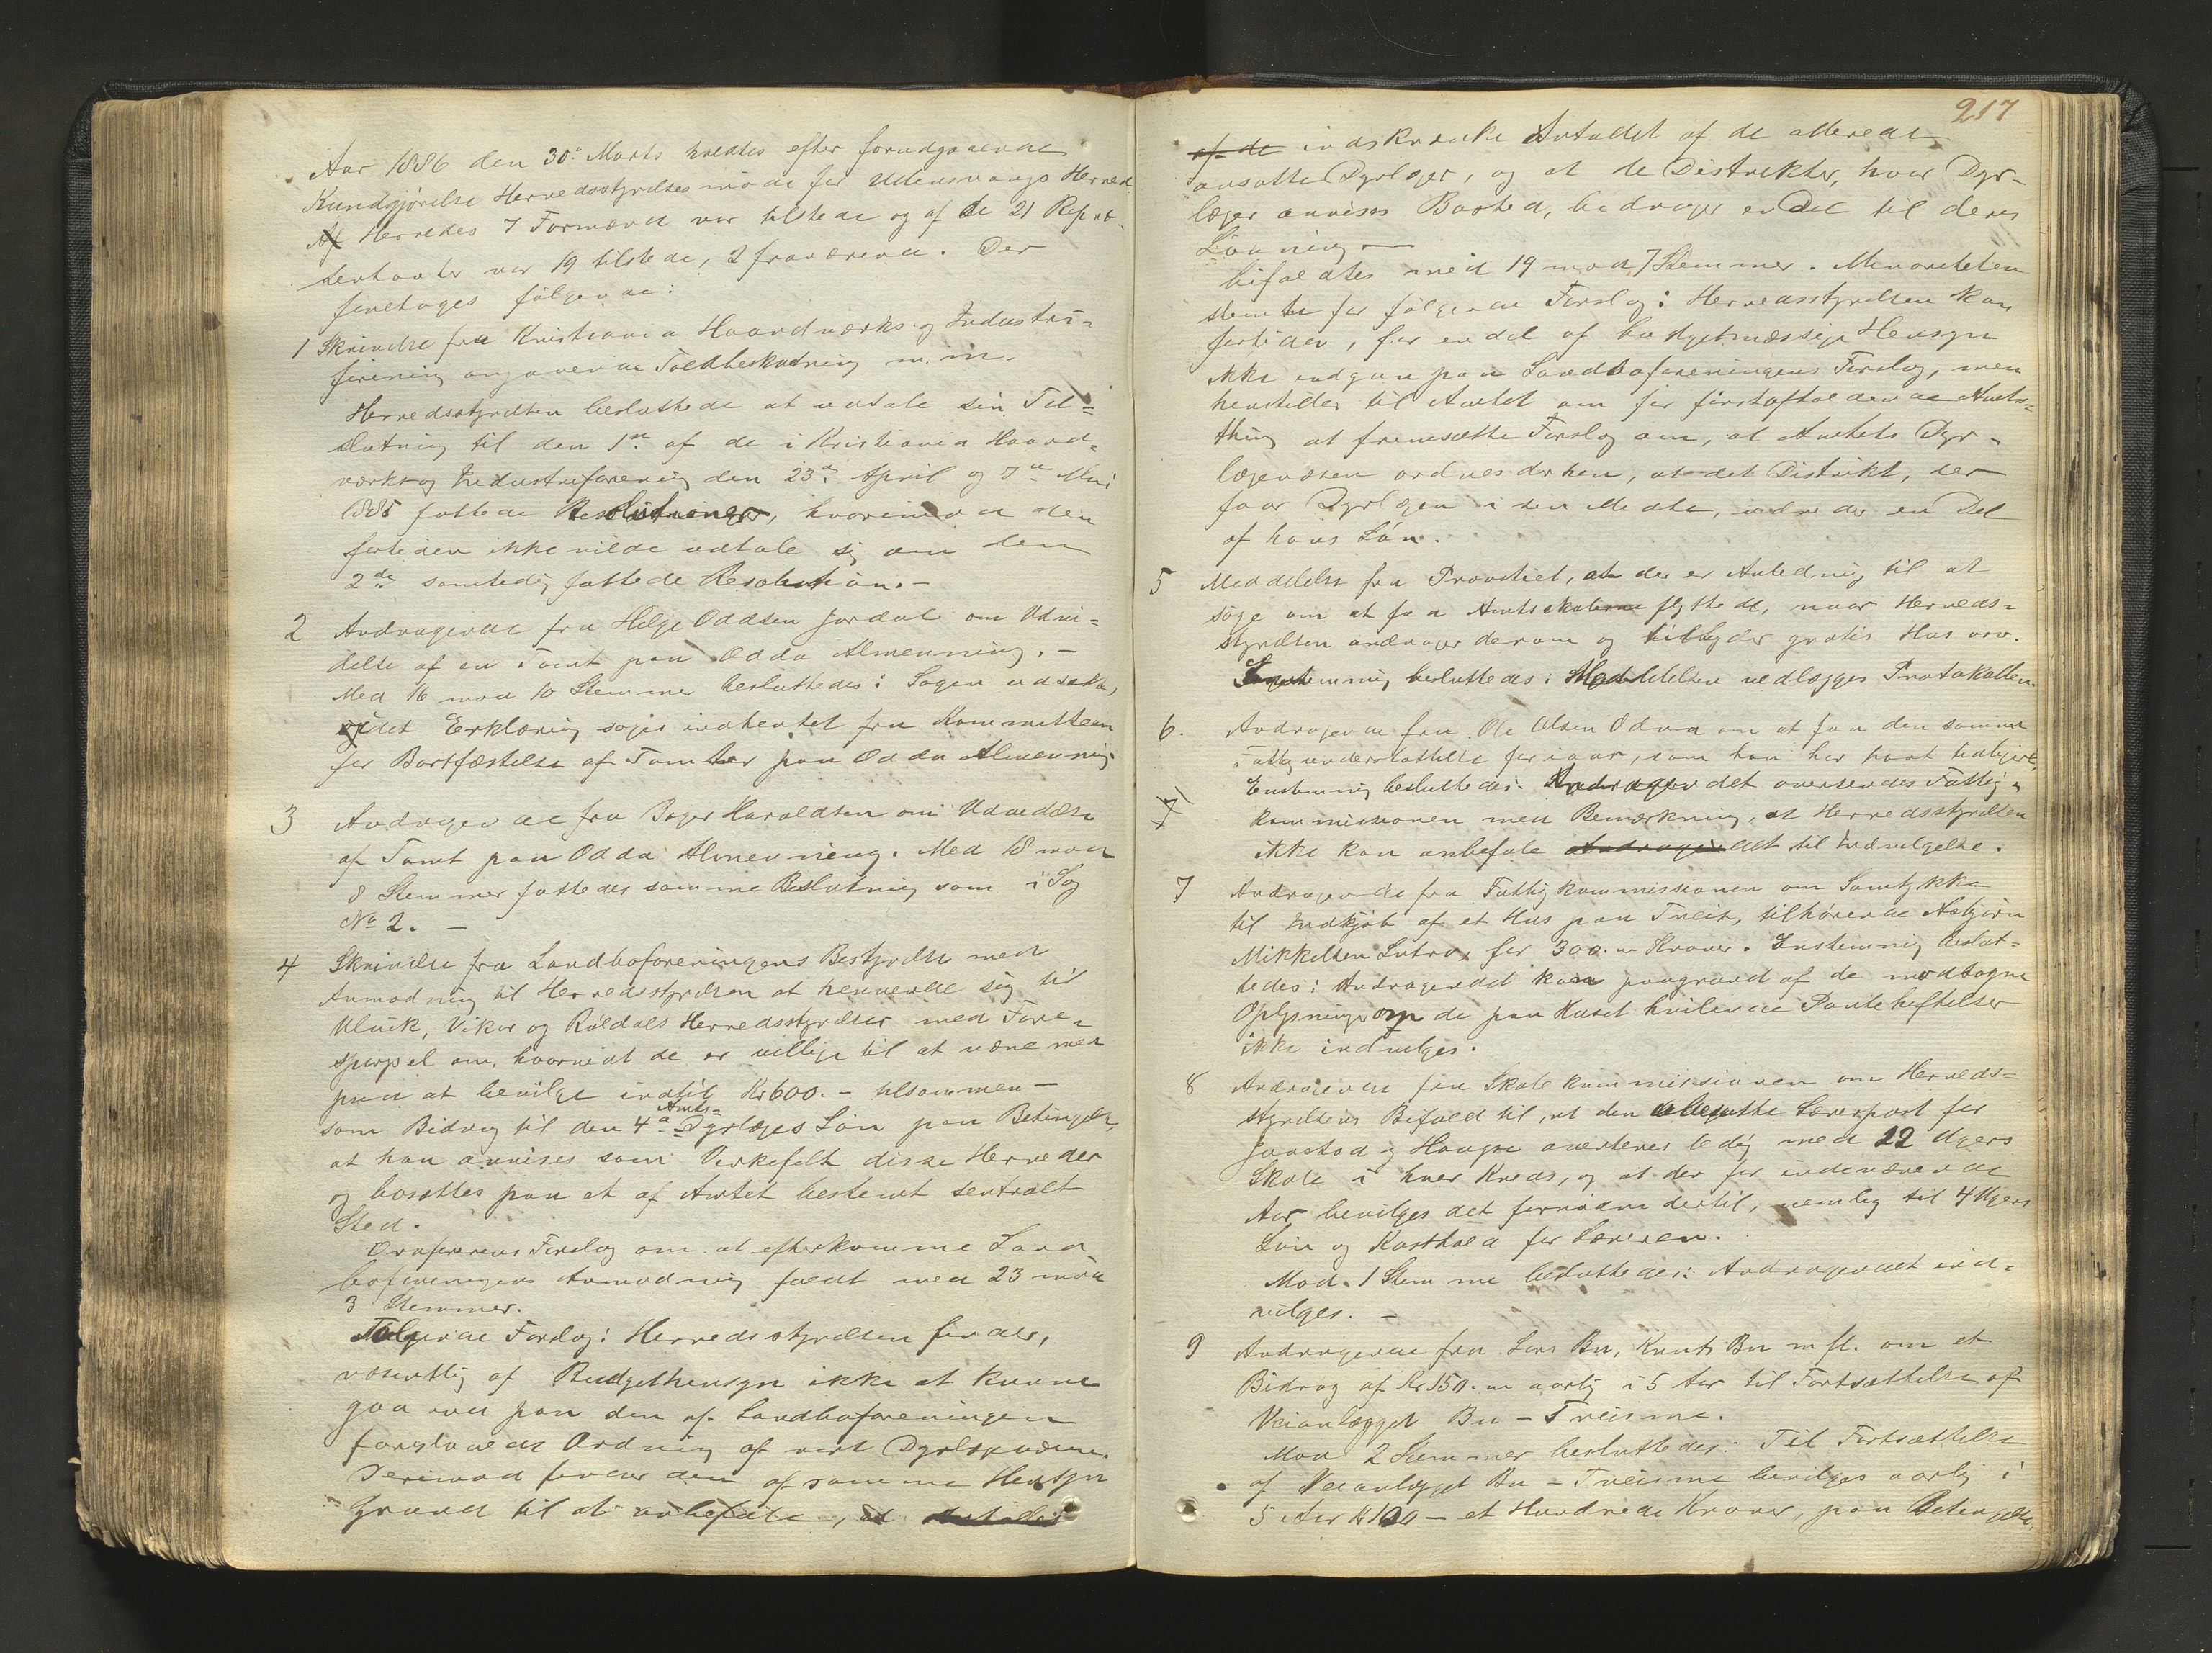 Aar 1886 den 30te Marts holdtes efter forudgaaende
Kundgjørelse Herredsstyrelsesmøde for Ullensvangs Herred
Af Herredes 7 Formænd var tilstede og af de 21 Repræ-
sentanter var 19 tilstede, 2 fraværende. Der
foretoges følgende:
1 Skrivelse fra Kristiania Haandværks- og Industri-
forening angaaende Toldbeskatning m. m.
Herredsstyrelsen besluttede at udtale sin Til-
slutning til den 1ste af de i Kristiania Haand-
værks og Industriforening den 23de April og 7de Mai
1885 fattede Resolutioner, hvorimod den
fortiden ikke vilde udtale sig om den
2den samtidig fattede Resolution.-
2 Andragende fra Helge Oddsen Jordal om Udvi-
delse af en Tomt paa Odda Almenning.-
Med 16 mod 10 Stemmer besluttedes: Sagen udsættes,
idet Erklæring søges indhentet fra Kommitteen
for Bortfæstelse af Tomter paa Odda Almenning
3 Andragende fra Haraldsen om Udvidelse
af Tomt paa Odda Almenning. Med 18 mod
8 Stemmer fattedes samme Beslutning som i Sag
No 2. -
4 Skrivelse fra Landboforeningens Bestyrelse med
Anmodning til Herredsstyrelsen at henvende sig til
Ulvik, Vikør og Røldals Herredsstyrelser med Fore-
spørgsel om, hvorvidt de er villige til at være med
paa at bevilge indtil Kr 600.- tilsammen -
som Bidrag til den 4de Amts-Dyrlæges Løn paa Betingelse,
at han anvises som Virkefelt disse Herreder
og bosættes paa et af Amtet bestemt sentralt
Sted.
Ordførerens Forslag om at efterkomme Land-
boforeningens Anmodning faldt med 23 mod
3 Stemmer.
Følgende Forslag: Herredsstyrelsen finder,
væsentlig af Budgethensyn ikke at kunne
gaa ind paa den af Landboforeningen
foreslaaede Ordning af vort Dyrlægevæsen.
Derimod finder den af samme Hensyn
Grund til at anbefale, at Antallet
217
af de indskrænke Antallet af de allerede
ansatte Dyrlæger, og at de Distrikter, hvor Dyr-
læger anvises Bosted, bidrager en Del til deres
Lønning -
bifaldtes med 19 mod 7 Stemmer. Minoriteten
stemte for følgende Forslag: Herredsstyrelsen kan
fortiden, for en del af budgetmæssige Hensyn
ikke indgaa paa Landboforeningens Forslag, men
henstiller til Amtet om for førstafholdende Amts-
thing at fremsætte Forslag om, at Amtets Dyr-
lægevæsen ordnes derhen, at det Distrikt, der
faar Dyrlægen i sin Midte, udreder en Del
af hans Løn.
5 Meddelelse fra Provstiet, at der er Anledning til at
søge om at faa Amtsskolerne flyttede, naar Herreds-
styrelsen andrager derom og tilbyder gratis Hus osv.
Enstemmig besluttedes: Meddelelsen vedlægges Protokollen.
6. Andragende fra Ole Olsen Odda om at faa den samme
Fattigunderstøttelse for iaar, som han har havt tidligere.
Enstemmig besluttedes: Andragendet oversendes Fattig-
7 kommissionen med Bemærkning, at Herredsstyrelsen
ikke kan anbefale Andragendet til Indvilgelse.
7 Andragende fra Fattigkommissionen om Samtykke
til Indkjøb af et Hus paa Treit, tilhørende Asbjørn
Mikkelsen Lutro, for 300.00 Kroner. Enstemmig beslut-
tedes: Andragendet kan paagrund af de modtagne
Oplysninger om de paa Huset hvilende Panteheftelser
ikke indvilges.
8 Andragende fra Skolekommissionen om Herreds-
styrelsens Bifald til, at den ubesatte Lærerpost for
Jaastad og Haugse averteres ledig med 12 Ugers
Skole i hver Kreds, og at der for indeværende
Aar bevilges det fornødne dertil, nemlig til 4 Ugers
Løn og Kosthold for Læreren.
Mod 1 Stemme besluttedes: Andragendet ind-
vilges. -
9 Andragende fra Lars Bu, Knut Bu m fl. om et
Bidrag af Kr 150.00 aarlig i 5 Aar til Fortsættelse af
Veianlægget Bu - Treisme.
Mod 2 Stemmer besluttedes: Til Fortsættelse
af Veianlægget Bu - Treisme bevilges aarlig i
5 Aar Kr 100 - et Hundrede Kroner, paa Betingelse,